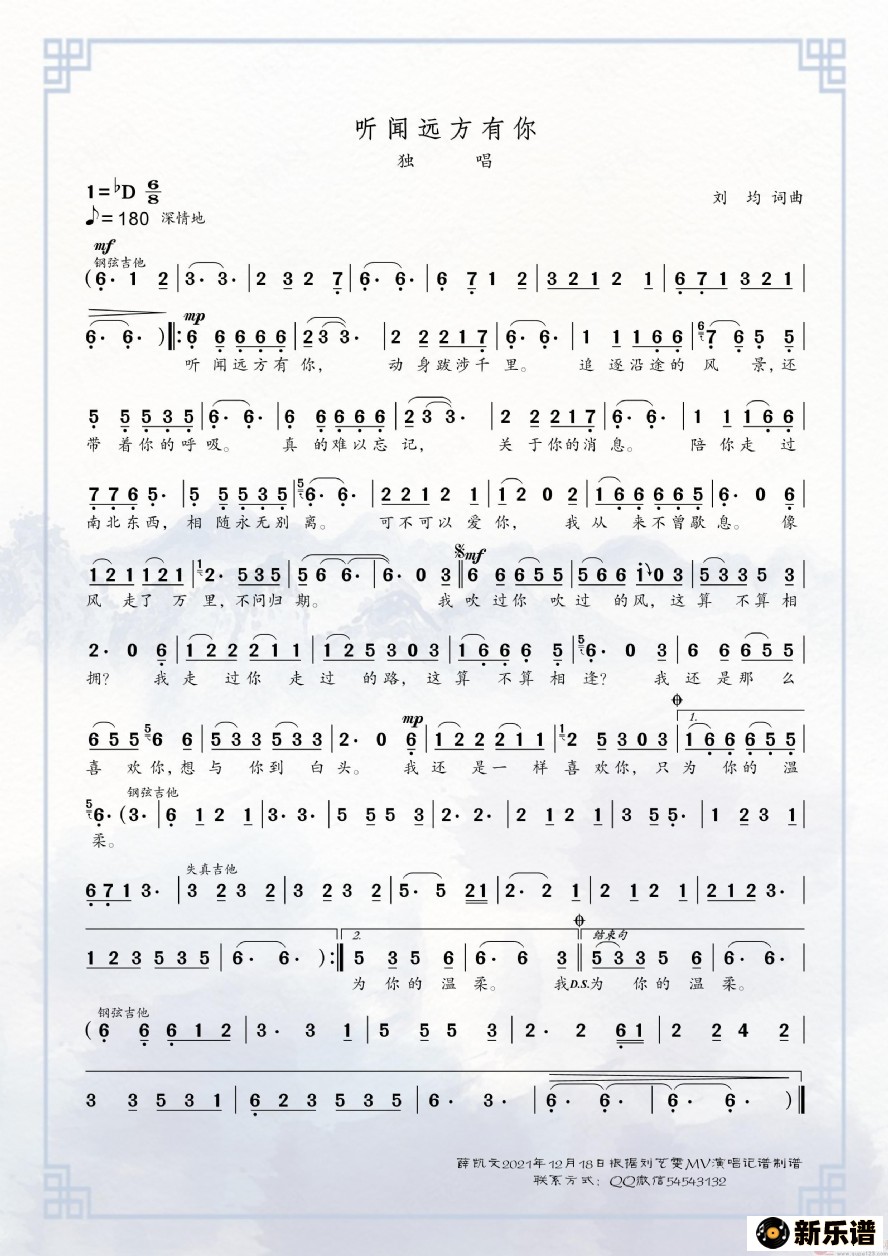 听闻远方有你
独 唱
1=♭D 6/8
刘 均 词曲
♪=180 深情地
mf
钢弦吉他
(6· 1 2 | 3· 3· | 2 3 2 7 | 6· 6· | 6 7 1 2 | 3 2 1 2 1 | 6 7 1 3 2 1 |
mp
6· 6· ) ‖: 6 6 6 6 6 | 2 3 3· | 2 2 2 1 7 | 6· 6· | 1 1 1 6 6 | 6 7· 6 5 5 |
听 闻远方有 你， 动 身跋涉千 里。 追 逐沿途的 风 景,还
5 5 5 3 5 | 6· 6· | 6 6 6 6 6 | 2 3 3· | 2 2 2 1 7 | 6· 6· | 1 1 1 6 6 |
带 着你的呼 吸。 真 的难以忘 记， 关 于你的消 息。 陪 你走 过
7 7 6 5· | 5 5 5 3 5 | 5 6· 6· | 2 2 1 2 1 | 1 2 0 2 | 1 6 6 6 6 5 | 6· 0 6 |
南北东西，相 随永无别 离。 可不可以 爱 你， 我 从 来不曾歇 息。 像
mf
1 2 1 1 2 1 | 1 2· 5 3 5 | 5 6 6· | 6· 0 3 ‖ 6 6 6 5 5 | 5 6 6 i 0 3 | 5 3 3 5 3 |
风 走了 万 里，不问归 期。 我 吹 过你 吹 过 的风，这 算 不算相
2· 0 6 | 1 2 2 2 1 1 | 1 2 5 3 0 3 | 1 6 6 6 5 | 5 6· 0 3 | 6 6 6 5 5 |
拥？ 我 走 过你 走 过 的路，这 算 不算相 逢？ 我 还 是那 么
mp
1.
6 5 5 5 6 6 | 5 3 3 5 3 3 | 2· 0 6 | 1 2 2 2 1 1 | 1 2 5 3 0 3 | 1 6 6 6 5 5 |
喜 欢你,想 与 你到 白 头。 我 还 是一 样 喜 欢你，只 为 你 的 温
钢弦吉他
5 6· (3· | 6 1 2 1 | 3· 3· | 5 5 5 3 | 2· 2· | 2 1 2 1 | 3 5 5· | 1 2 3 1 |
柔。
失真吉他
6 7 1 3· | 3 2 3 2 | 3 2 3 2 | 5· 5 2 1 | 2· 2 1 | 2 1 2 1 | 2 1 2 3· |
2.
结束句
1 2 3 5 3 5 | 6· 6· ) :‖ 5 3 5 6 | 6· 6 3 ‖ 5 3 3 5 6 | 6· 6· |
为 你的 温 柔。 我D.S.为 你的 温 柔。
钢弦吉他
(6 6 6 1 2 | 3· 3 1 | 5 5 5 3 | 2· 2 6 1 | 2 2 4 2 |
3 3 5 3 1 | 6 2 3 5 3 5 | 6· 3· | 6· 6· | 6· 6· ) ‖
薛凯文2021年12月18日根据刘艺雯MV演唱记谱制谱
联系方式：QQ微信54543132
新乐谱